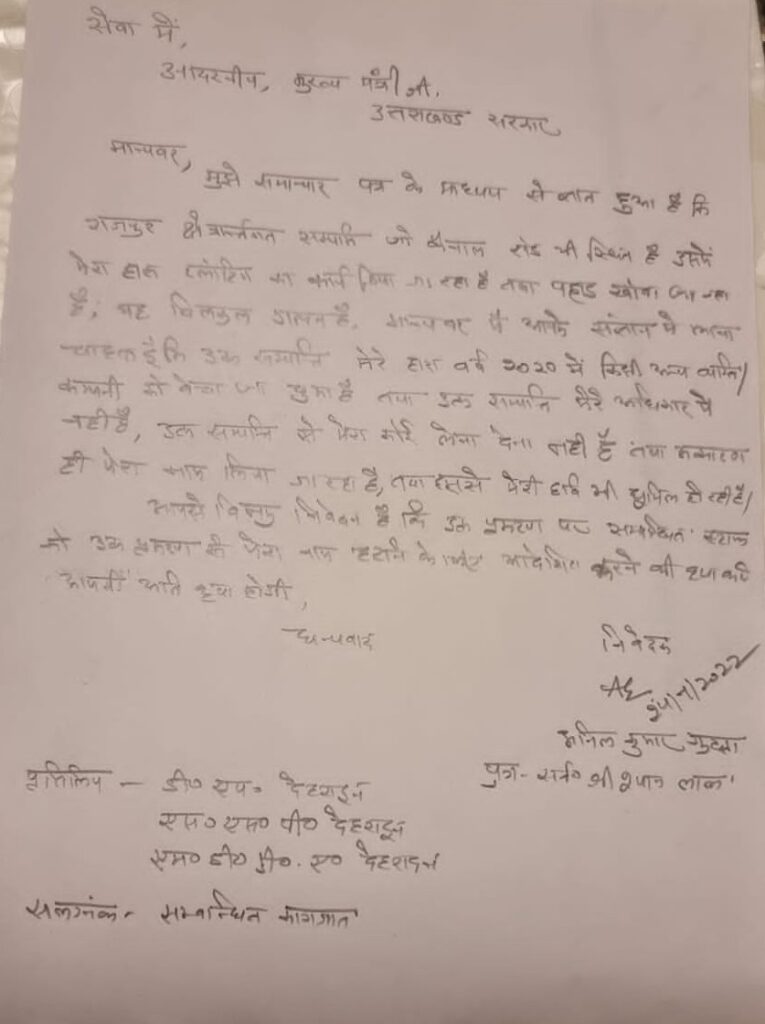 सेवा में,
आदरनीय, मुख्य मंत्री जी,
उत्तराखण्ड सरकार
मान्यवर,
मुझे समाचार पत्र के माध्यम से ज्ञात हुआ है कि
राजपुर क्षेत्रान्तर्गत सम्पत्ति जो कैनाल रोड भी स्थित है उसमें
मेरा द्वारा प्लोटिंग का कार्य किया जा रहा है तथा पहाड खोदा जा रहा
है, यह बिलकुल गलत है, मान्यवर मैं आपके संज्ञान मे लाना
चाहता हूँ कि उक्त सम्पत्ति मेरे द्वारा वर्ष 2020 में किसी अन्य व्यक्ति/
कम्पनी को बेचा जा चुका है तथा उक्त सम्पत्ति मेरे अधिकार मे
नही है, उक्त सम्पत्ति से मेरा कोई लेना देना नही है तथा अकारण
ही मेरा नाम लिया जा रहा है, तथा इससे मेरी छवि भी धुमिल हो रही है/
आपसे विनम्र निवेदन है कि उक्त प्रकरण पर सम्बन्धित स्टाफ
को उक्त प्रकरण से मेरा नाम हटाने के लिए आदेशित करने की कृपा करे
आपकी अति कृपा होगी,
धन्यवाद
निवेदक
अनिल कुमार गुप्ता
पुत्र- स्व० श्री श्याम लाल
प्रतिलिपि - डी० एम० देहरादून
एस० एस० पी० देहरादून
एम० डी० डी०. ए० देहरादून
सलग्नंक - सम्बन्धित कागजात